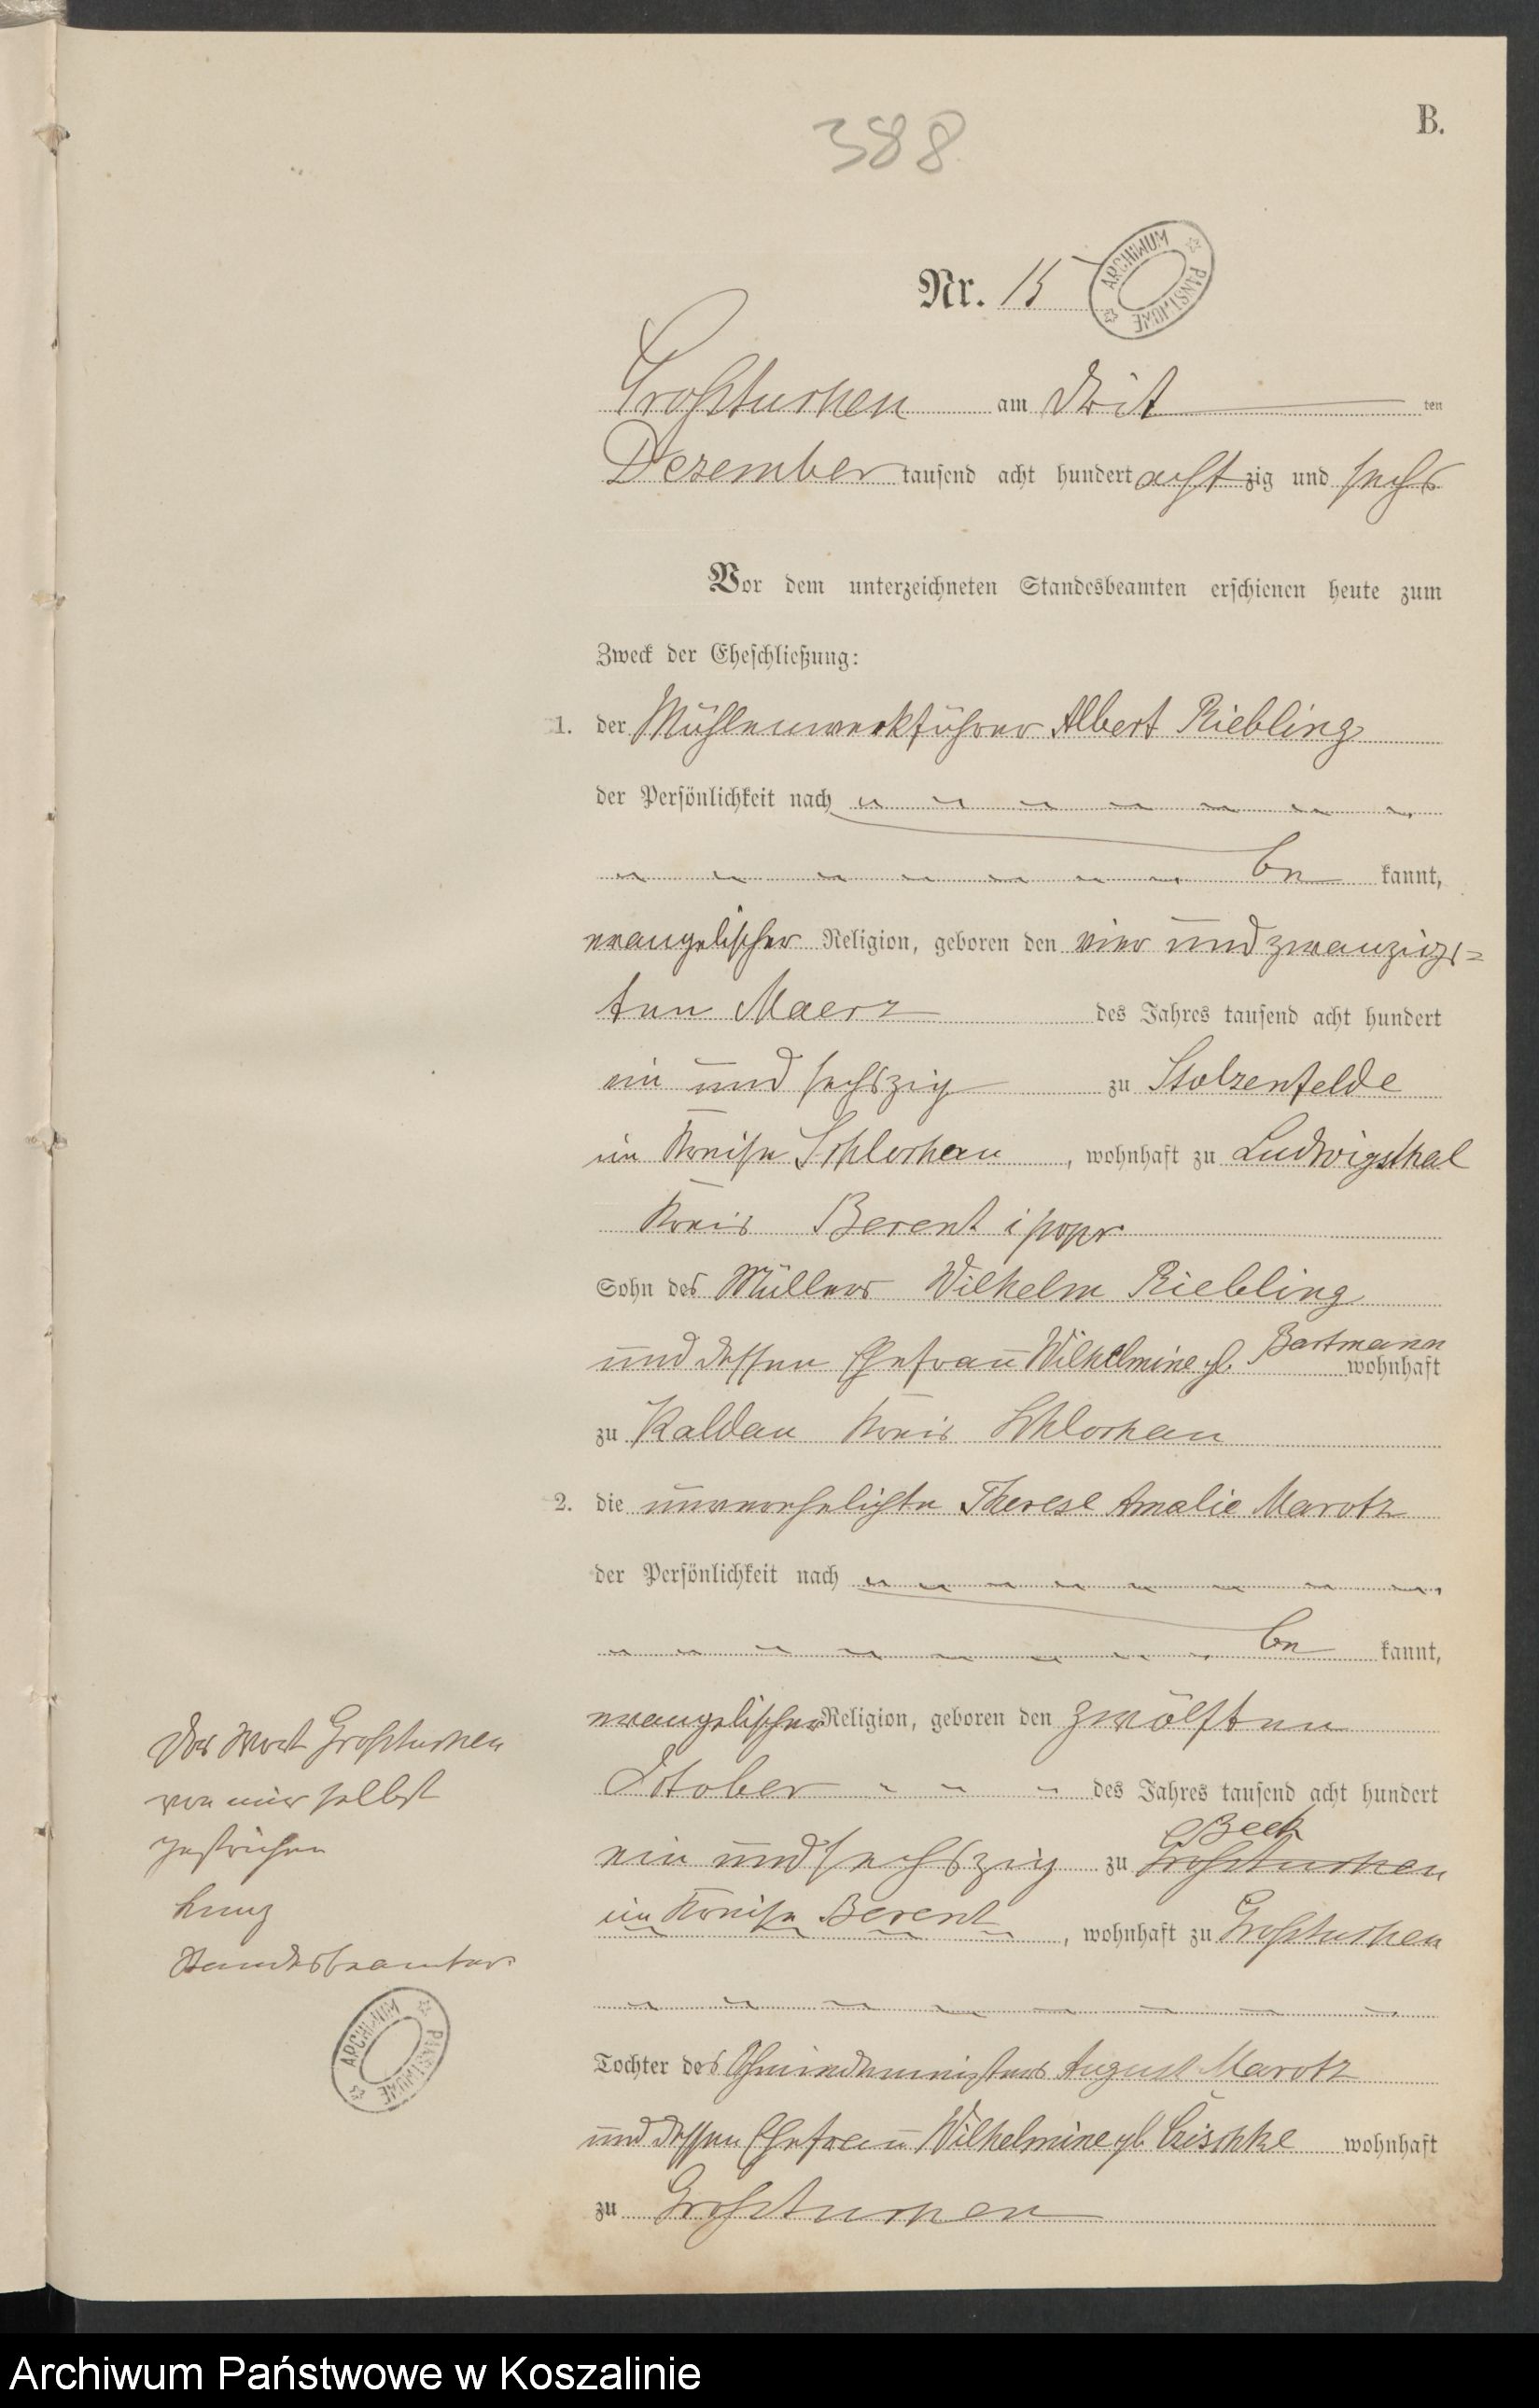 B.
388
Nr. 15
ARCHIWUM PAŃSTWOWE
Großtuchen am drit ten
Dezember tausend acht hundert acht zig und sechs
Vor dem unterzeichneten Standesbeamten erschienen heute zum
Zweck der Eheschließung:
1. der Mühlenwerkführer Albert Riebling
der Persönlichkeit nach
be kannt,
evangelischer Religion, geboren den vier und zwanzigs=
ten Maerz des Jahres tausend acht hundert
ein und sechszig zu Stolzenfelde
im Kreise Schlochau, wohnhaft zu Ludwigsthal
Kreis Berent
Sohn des Müllers Wilhelm Riebling
und dessen Ehefrau Wilhelmine gb. Bartmann wohnhaft
zu Kaldau Kreis Schlochau
2. die unverehelichte Therese Amalie Marotz
der Persönlichkeit nach
be kannt,
evangelischer Religion, geboren den zwölften
October des Jahres tausend acht hundert
Beek
ein und sechszig zu Großtuchen
im Kreise Berent, wohnhaft zu Großtuchen
Tochter des August Marotz
und dessen Ehefrau Wilhelmine gb Czischke wohnhaft
zu Großtuchen
Das Wort Großtuchen
von mir selbst
gestrichen
Standesbeamter
ARCHIWUM PAŃSTWOWE
Archiwum Państwowe w Koszalinie